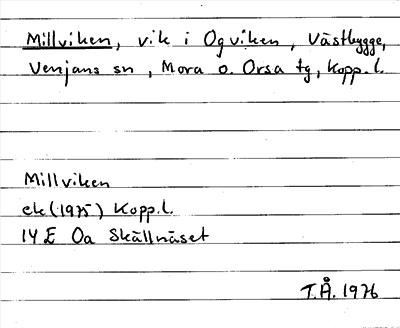 Millviken, vik i Ogviken, Västbygge,
Venjans sn, Mora o. Orsa tg, Kopp. l.
Millviken
ek (1975) Kopp. l.
14 E Oa Skällnäset
T.Å. 1976